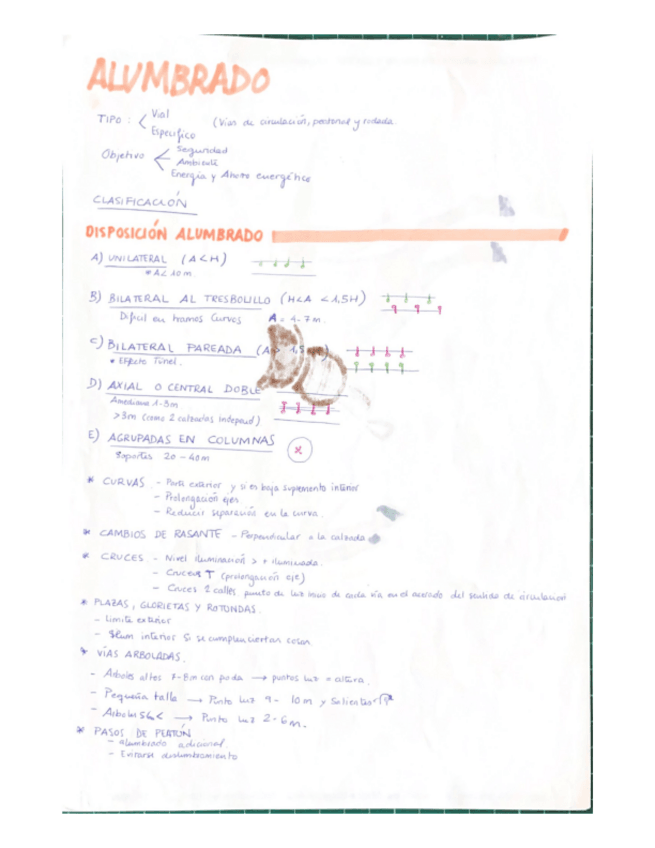 ALUMBRADO
TIPO: Vial
Específico (Vías de circulación, peatonal y rodada
Objetivo Seguridad
Ambiente
Energía y Ahorro energético
CLASIFICACIÓN
DISPOSICIÓN ALUMBRADO
A) UNILATERAL (A<H)
* A< 10m.
B) BILATERAL AL TRESBOLILLO (H<A <1,5H)
Difícil en tramos Curvos A = 4-7m.
C) BILATERAL PAREADA (A> 1,5
* Efecto Túnel.
D) AXIAL O CENTRAL DOBLE
Amediana 1-3m
>3m (como 2 calzadas independ)
E) AGRUPADAS EN COLUMNAS
Soportes 20-40m
* CURVAS - Parte exterior y si es baja suplemento interior
- Prolongación ejes
- Reducir separación en la curva.
* CAMBIOS DE RASANTE - Perpendicular a la calzada
* CRUCES - Nivel iluminación > + iluminada.
- Cruces T (prolongación eje)
- Cruces 2 calles, punto de luz de cada vía en el del sentido de circulacion
* PLAZAS, GLORIETAS Y ROTONDAS.
- Limite exterior
- Ilum interior Si se cumplen ciertas cosas
* VÍAS ARBOLADAS.
- Arboles altos 7-8m con poda → puntos luz = altura.
- Pequeña talla → Punto luz 9-10m y Saliente
- → Punto luz 2-6m.
* PASOS DE PEATÓN
- alumbrado adicional
- Evitarse deslumbramiento